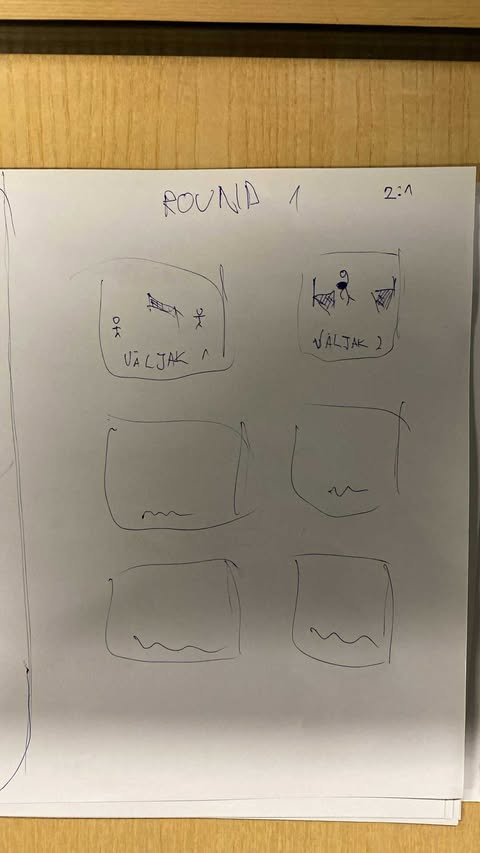 ROUND 1 2:1
VÄLJAK 1 VÄLJAK 2